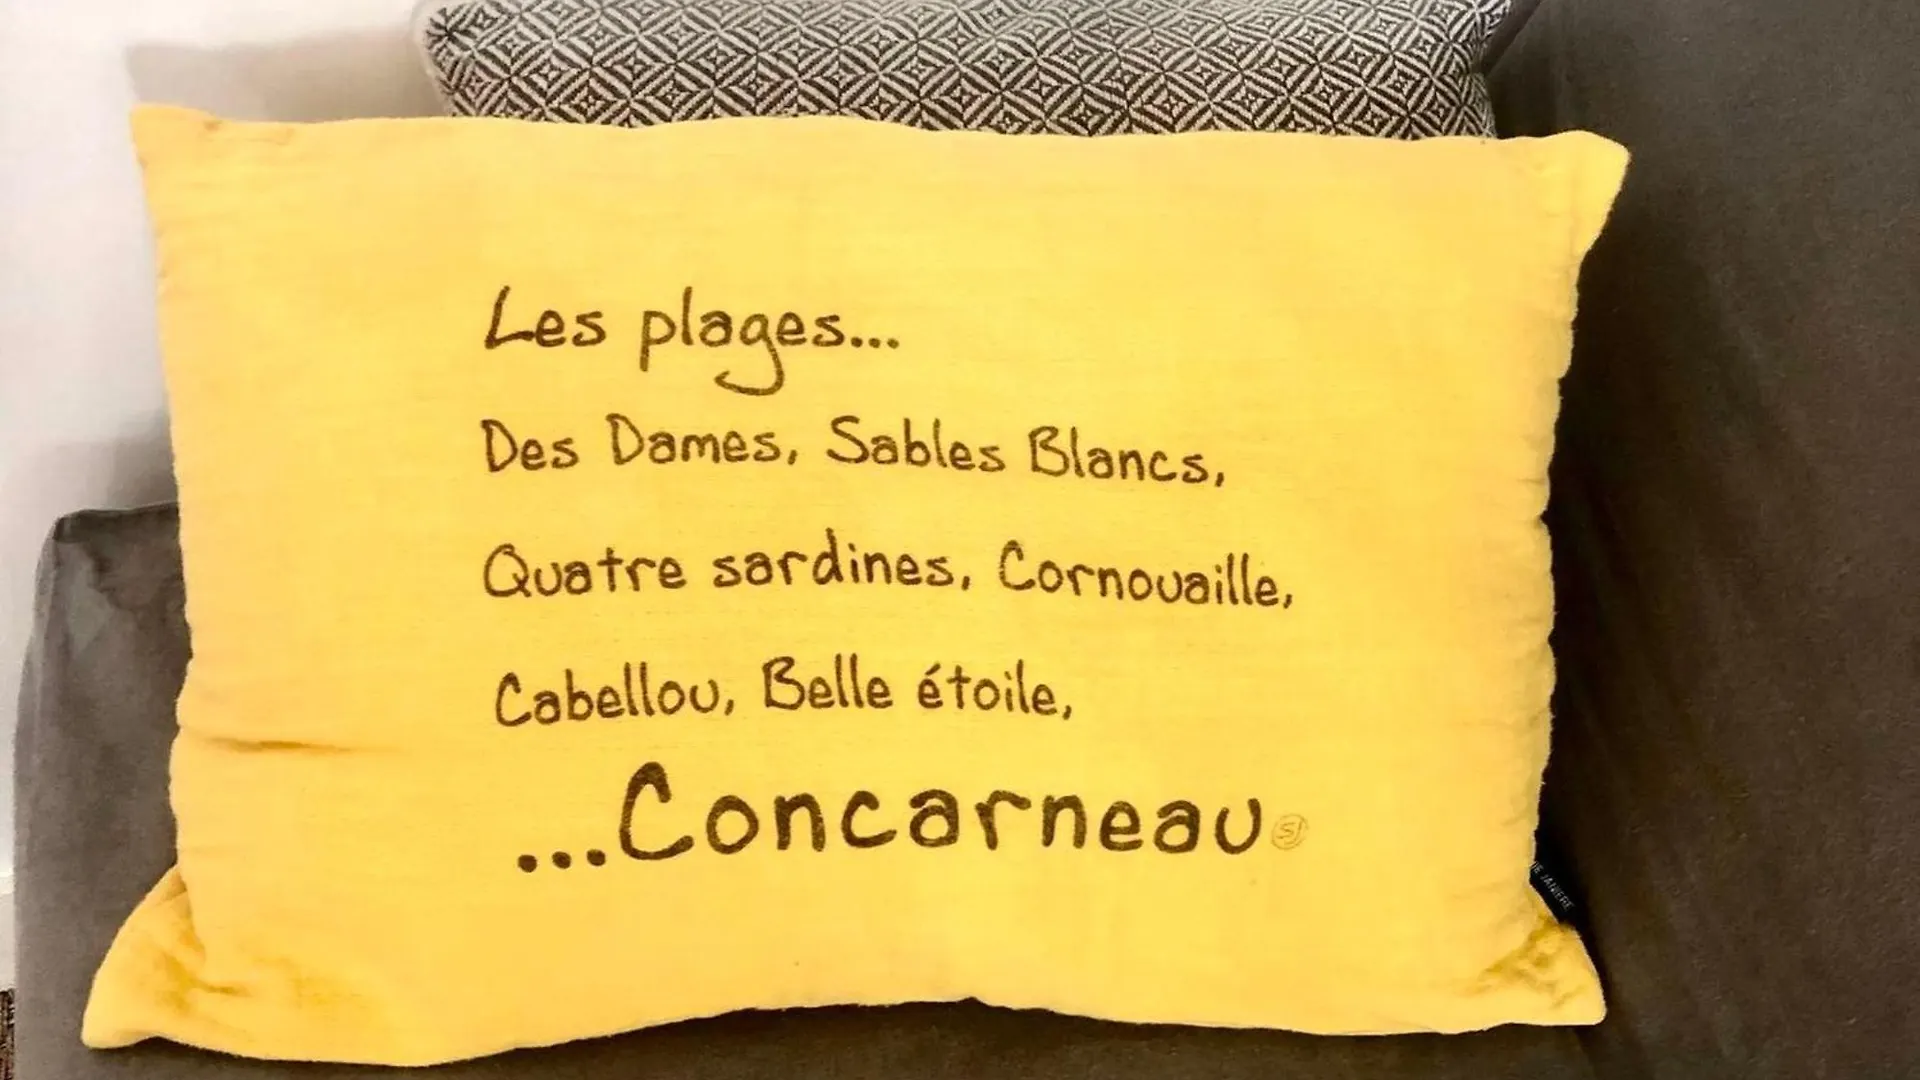 Les plages...
Des Dames, Sables Blancs,
Quatre sardines, Cornouaille,
Cabellou, Belle étoile,
...Concarneau
SJ